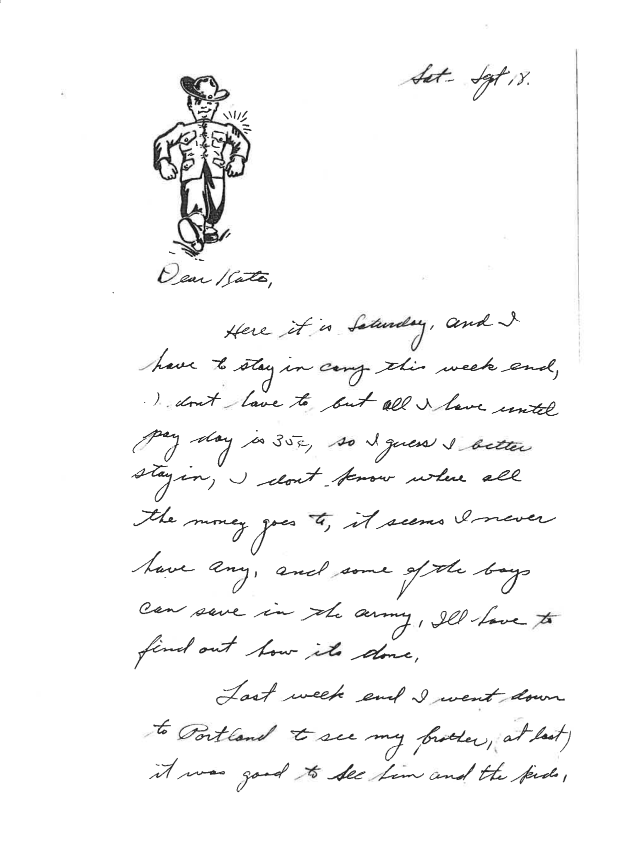 Sat- Sept 18.
Dear Kate,
Here it is Saturday, and I
have to stay in camp this week end,
I dont have to but all I have until
pay day is 35¢, so I guess I better
stay in, I dont know where all
the money goes to, it seems I never
have any, and some of the boys
can save in the army, Ill have to
find out how its done.
Last week end I went down
to Portland to see my brother, (at last)
it was good to see him and the kids,